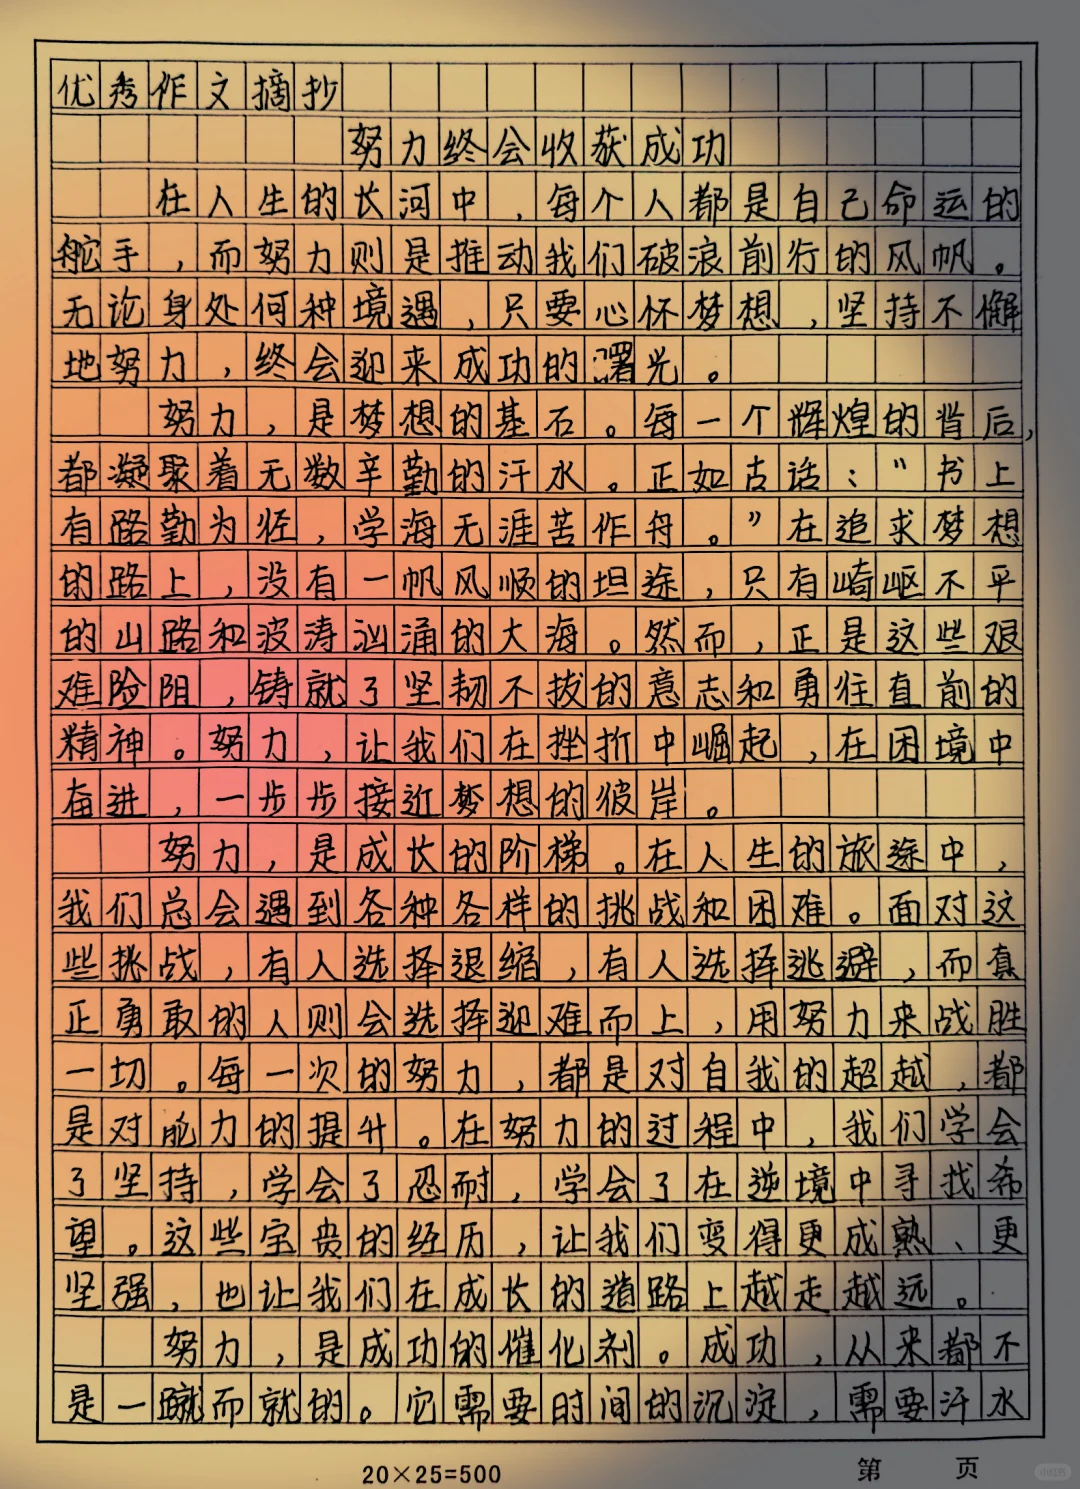 优秀作文摘抄
努力终会收获成功
在人生的长河中，每个人都是自己命运的
舵手，而努力则是推动我们破浪前行的风帆。
无论身处何种境遇，只要心怀梦想，坚持不懈
地努力，终会迎来成功的曙光。
努力，是梦想的基石。每一个辉煌的背后，
都凝聚着无数辛勤的汗水。正如古话：“书上
有路勤为径，学海无涯苦作舟。”在追求梦想
的路上，没有一帆风顺的坦途，只有崎岖不平
的山路和波涛汹涌的大海。然而，正是这些艰
难险阻，铸就了坚韧不拔的意志和勇往直前的
精神。努力，让我们在挫折中崛起，在困境中
奋进，一步步接近梦想的彼岸。
努力，是成长的阶梯。在人生的旅途中，
我们总会遇到各种各样的挑战和困难。面对这
些挑战，有人选择退缩，有人选择逃避，而真
正勇敢的人则会选择迎难而上，用努力来战胜
一切。每一次的努力，都是对自我的超越，都
是对能力的提升。在努力的过程中，我们学会
了坚持，学会了忍耐，学会了在逆境中寻找希
望。这些宝贵的经历，让我们变得更成熟、更
坚强，也让我们在成长的道路上越走越远。
努力，是成功的催化剂。成功，从来都不
是一蹴而就的。它需要时间的沉淀，需要汗水
20×25=500 第 页
小红书